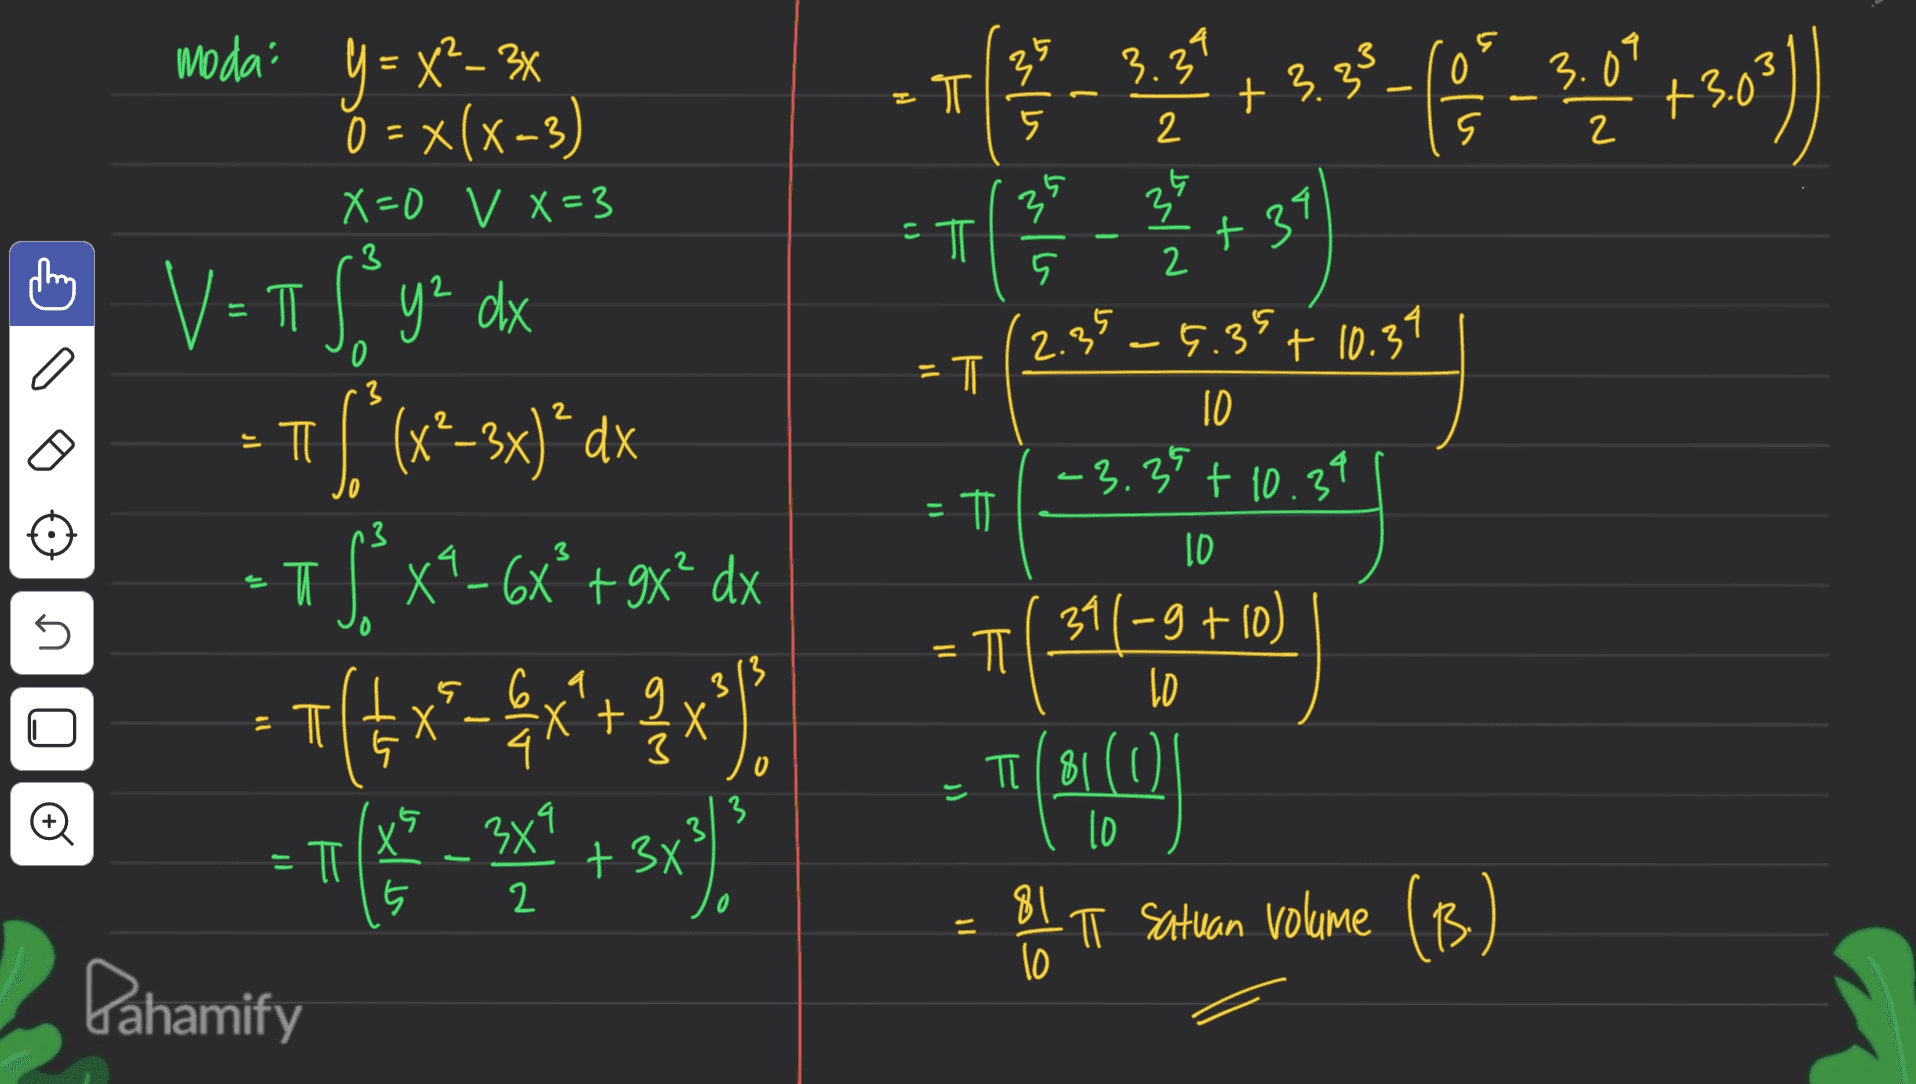 moda: y = x² - 3x
0 = x(x-3)
x=0 V x=3
V = π ∫₀³ y² dx
= π ∫₀³ (x²-3x)² dx
= π ∫₀³ x⁴ - 6x³ + 9x² dx
= π (1/5 x⁵ - 6/4 x⁴ + 9/3 x³)|₀³
= π (x⁵/5 - 3x⁴/2 + 3x³)|₀³
= π (3⁵/5 - 3.3⁴/2 + 3.3³ - (0⁵/5 - 3.0⁴/2 + 3.0³))
= π (3⁵/5 - 3⁵/2 + 3⁴)
= π ((2.3⁵ - 5.3⁵ + 10.3⁴)/10)
= π ((-3.3⁵ + 10.3⁴)/10)
= π (3⁴(-9+10)/10)
= π (81(1)/10)
= 81/10 π satuan volume (B.)
Pahamify